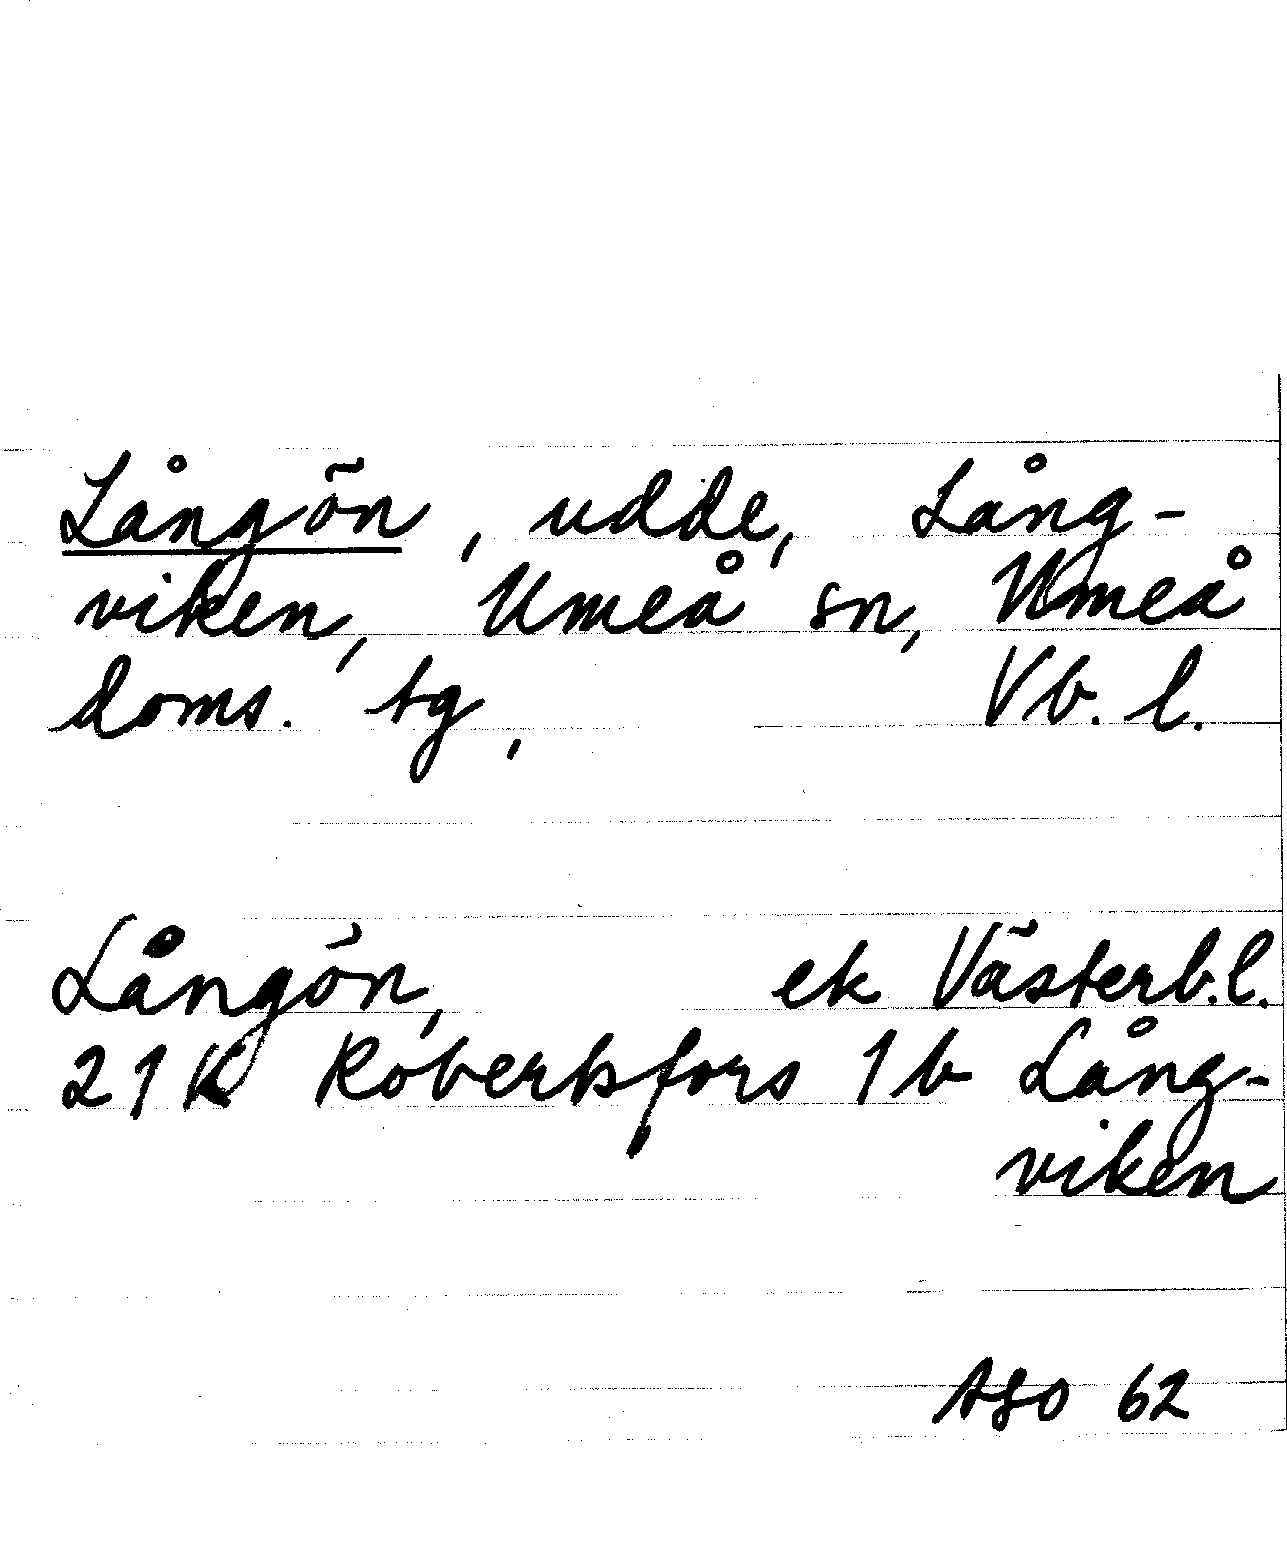 Långön, udde, Lång-
viken, Umeå sn, Umeå
doms. tg, Vb. l.
Långön, ek Västerb.l.
21K Robertsfors 1b Lång-
viken
62